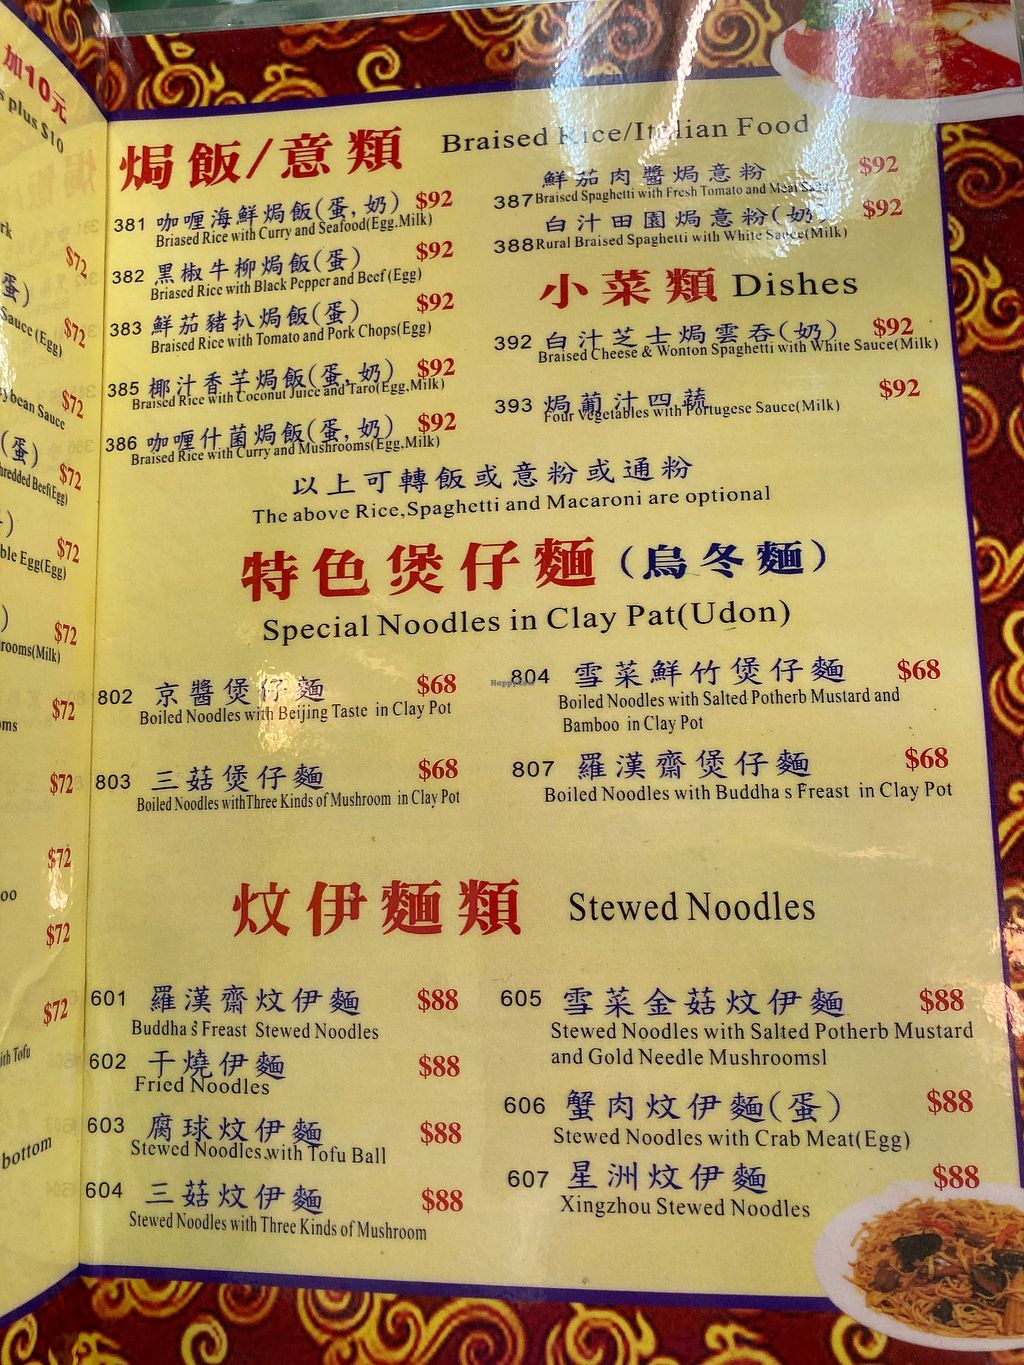 加10元
s plus $10
rk
$72
蛋)
Sauce (Egg)
$72
ybean Sauce
$72
(蛋)
hredded Beef(Egg)
$72
ble Egg(Egg)
$72
)
rooms(Milk)
$72
oms
$72
$72
$72
oo
$72
$72
ith Tofu
bottom
焗飯/意類 Braised Rice/Italian Food
381 咖喱海鮮焗飯(蛋,奶) $92
Briased Rice with Curry and Seafood(Egg.Milk)
382 黑椒牛柳焗飯(蛋) $92
Briased Rice with Black Pepper and Beef (Egg)
383 鮮茄豬扒焗飯(蛋) $92
Braised Rice with Tomato and Pork Chops(Egg)
385 椰汁香芋焗飯(蛋,奶) $92
Braised Rice with Coconut Juice and Taro(Egg,Milk)
386 咖喱什菌焗飯(蛋,奶) $92
Braised Rice with Curry and Mushrooms(Egg,Milk)
387 鮮茄肉醬焗意粉 $92
Braised Spaghetti with Fresh Tomato and Meat Sauce
388 白汁田園焗意粉(奶) $92
Rural Braised Spaghetti with White Sauce(Milk)
小菜類 Dishes
392 白汁芝士焗雲吞(奶) $92
Braised Cheese & Wonton Spaghetti with White Sauce(Milk)
393 焗葡汁四蔬 $92
Four Vegetables with Portugese Sauce(Milk)
以上可轉飯或意粉或通粉
The above Rice,Spaghetti and Macaroni are optional
特色煲仔麵(烏冬麵)
Special Noodles in Clay Pat(Udon)
802 京醬煲仔麵 $68
Boiled Noodles with Beijing Taste in Clay Pot
803 三菇煲仔麵 $68
Boiled Noodles withThree Kinds of Mushroom in Clay Pot
804 雪菜鮮竹煲仔麵 $68
Boiled Noodles with Salted Potherb Mustard and
Bamboo in Clay Pot
807 羅漢齋煲仔麵 $68
Boiled Noodles with Buddha s Freast in Clay Pot
HappyCow
炆伊麵類 Stewed Noodles
601 羅漢齋炆伊麵 $88
Buddha s Freast Stewed Noodles
602 干燒伊麵 $88
Fried Noodles
603 腐球炆伊麵 $88
Stewed Noodles.with Tofu Ball
604 三菇炆伊麵 $88
Stewed Noodles with Three Kinds of Mushroom
605 雪菜金菇炆伊麵 $88
Stewed Noodles with Salted Potherb Mustard
and Gold Needle Mushroomsl
606 蟹肉炆伊麵(蛋) $88
Stewed Noodles with Crab Meat(Egg)
607 星洲炆伊麵 $88
Xingzhou Stewed Noodles